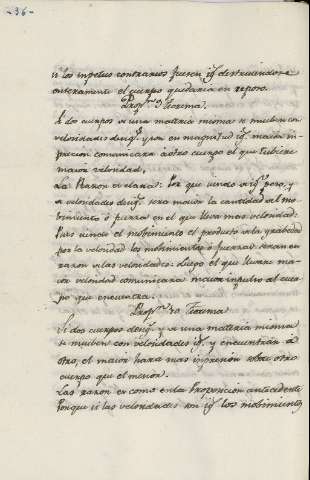 -36-
si los impetus contrarios fuesen ig.^s destruiendose
enteramente el cuerpo quedaria en reposo.
Prop.^n 9 Teorema.
Si dos cuerpos de una materia misma se mueben con
velocidades desig.^s y son en magnitud ig.^s maior im-
presion comunicara à otro cuerpo el que tubiere
maior velocidad.
La Razon es clara: Por que siendo de ig.^l peso, y
de velocidades desig.^s sera maior la cantidad del mo-
bimiento ó fuerza en el que lleva mas velocidad:
Pues siendo el mobimiento el producto de la grabedad
por la velocidad los mobimientos ó fuerzas seran en
razon de las velocidades: luego el que llevare ma-
ior velocidad comunicara maior impulso al cuer-
po que encuentra.
Prop.^n 10 Teorema
Si dos cuerpos desig.^s y de una materia misma
se mueben con velocidades ig.^s y encuentran à
otro, el maior hara mas impresion sobre otro
cuerpo que el menor.
La razon es como en la Proposicion antecedente
Porque si las velocidades son ig.^s los mobimientos